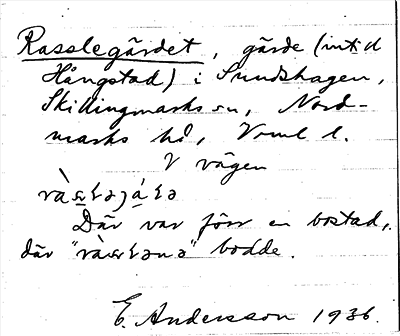 Rasslegärdet, gärde (intid
Hångstad) i Sundshagen,
Skillingmarks sn, Nord-
marks hd, Vrml l.
V vägen
Där var förr en bostad,
där " " bodde.
E. Andersson 1936.